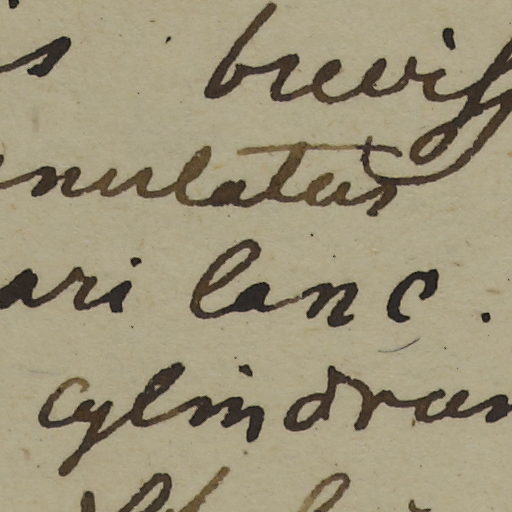 is breviss
nulatus
ari lanc.
cylindran